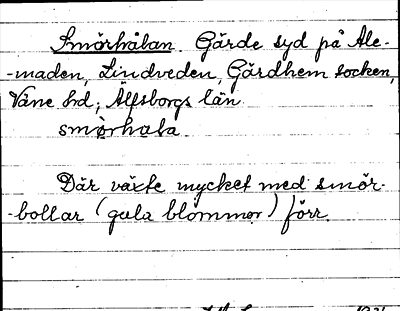 Smörhålan. Gärde syd på Ale-
-maden, Lindveden, Gärdhem socken,
Väne hd, Älfsborgs län.
smörhala.
Där växte mycket med smör-
-bollar (gula blommor) förr.